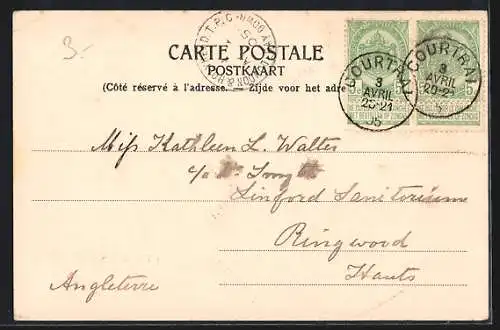 3-
CARTE POSTALE
POSTKAART
(Côté réservé à l'adresse. — Zijde voor het adre
COURTRAI
3
AVRIL
20-21
05
COURTRAI
3
AVRIL
20-21
Miss Kathleen L. Walter
c/o Smyth
Linford Sanitorium
Ringwood
Hants
Angleterre